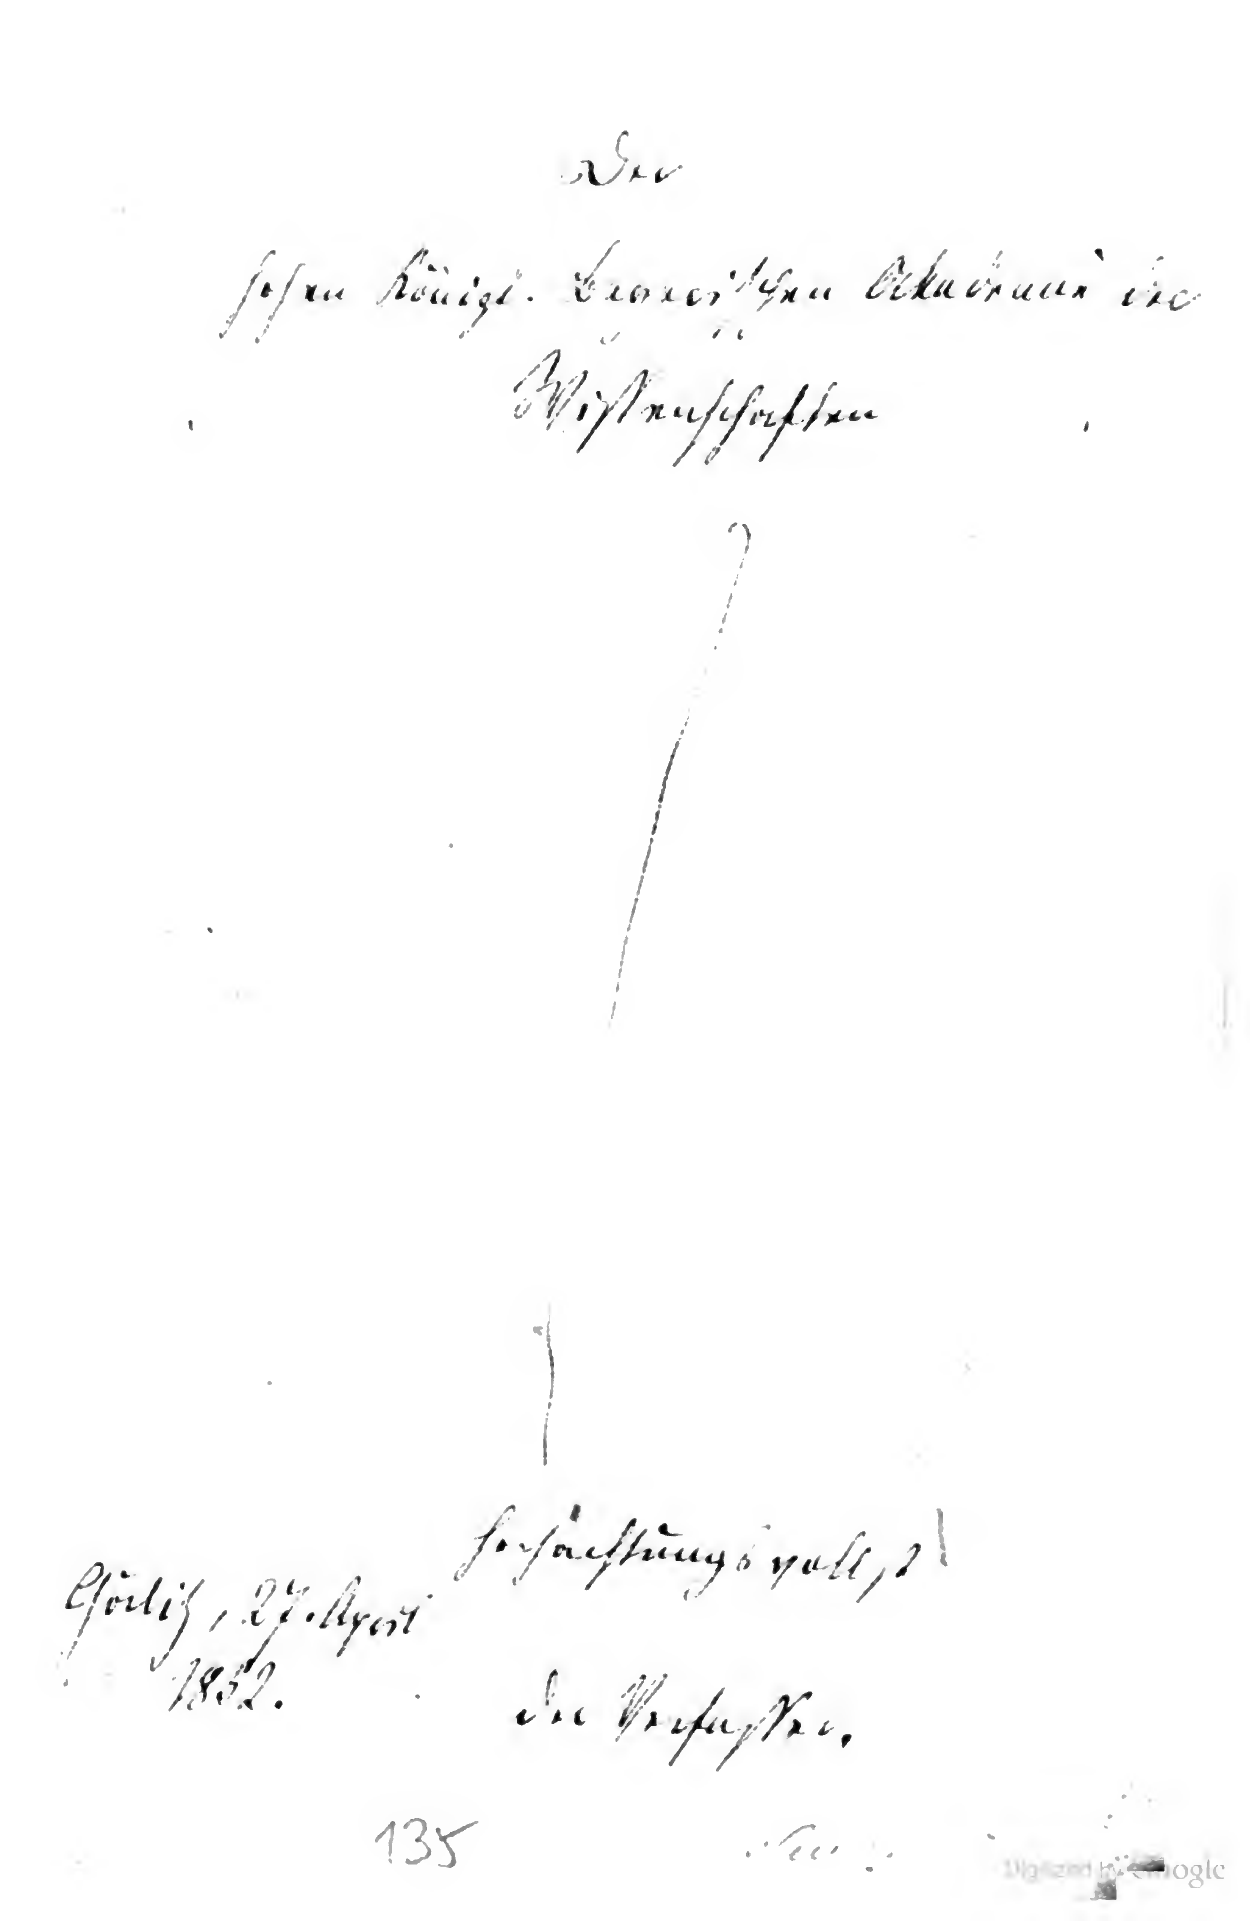 Der
hohen Königl. Bayerischen Akademie der
Wissenschaften
hochachtungsvollst
Görlitz, 27. April
1852.
der Verfasser.
135
Digitized by Google